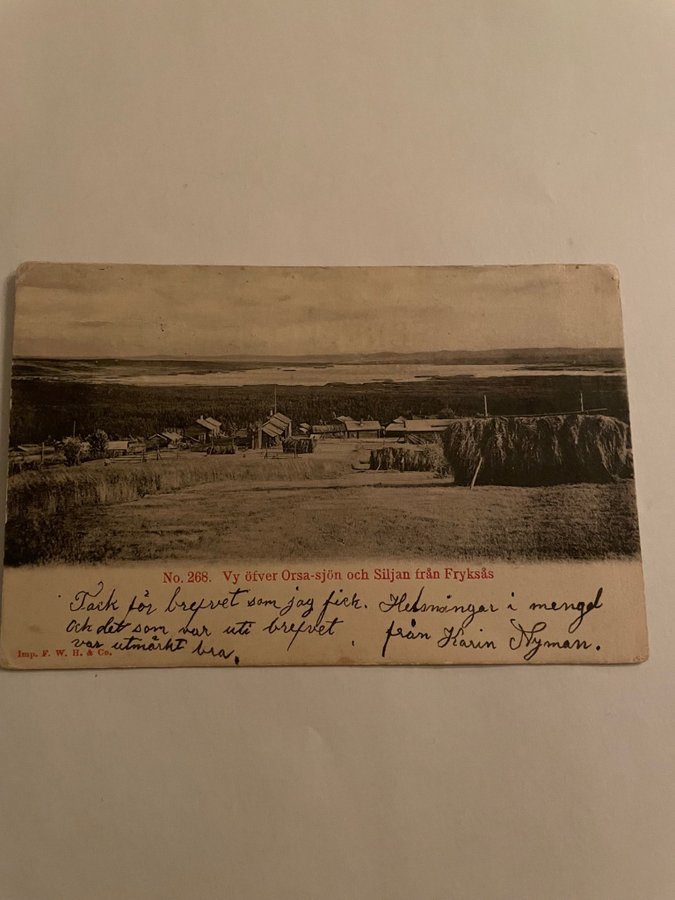 No. 268. Vy öfver Orsa-sjön och Siljan från Fryksås
Tack för brefvet som jag fick.
och det som var uti brefvet
var utmärkt bra.
Helsningar i mengd
från Karin Nyman.
Imp. F. W. H. & Co.